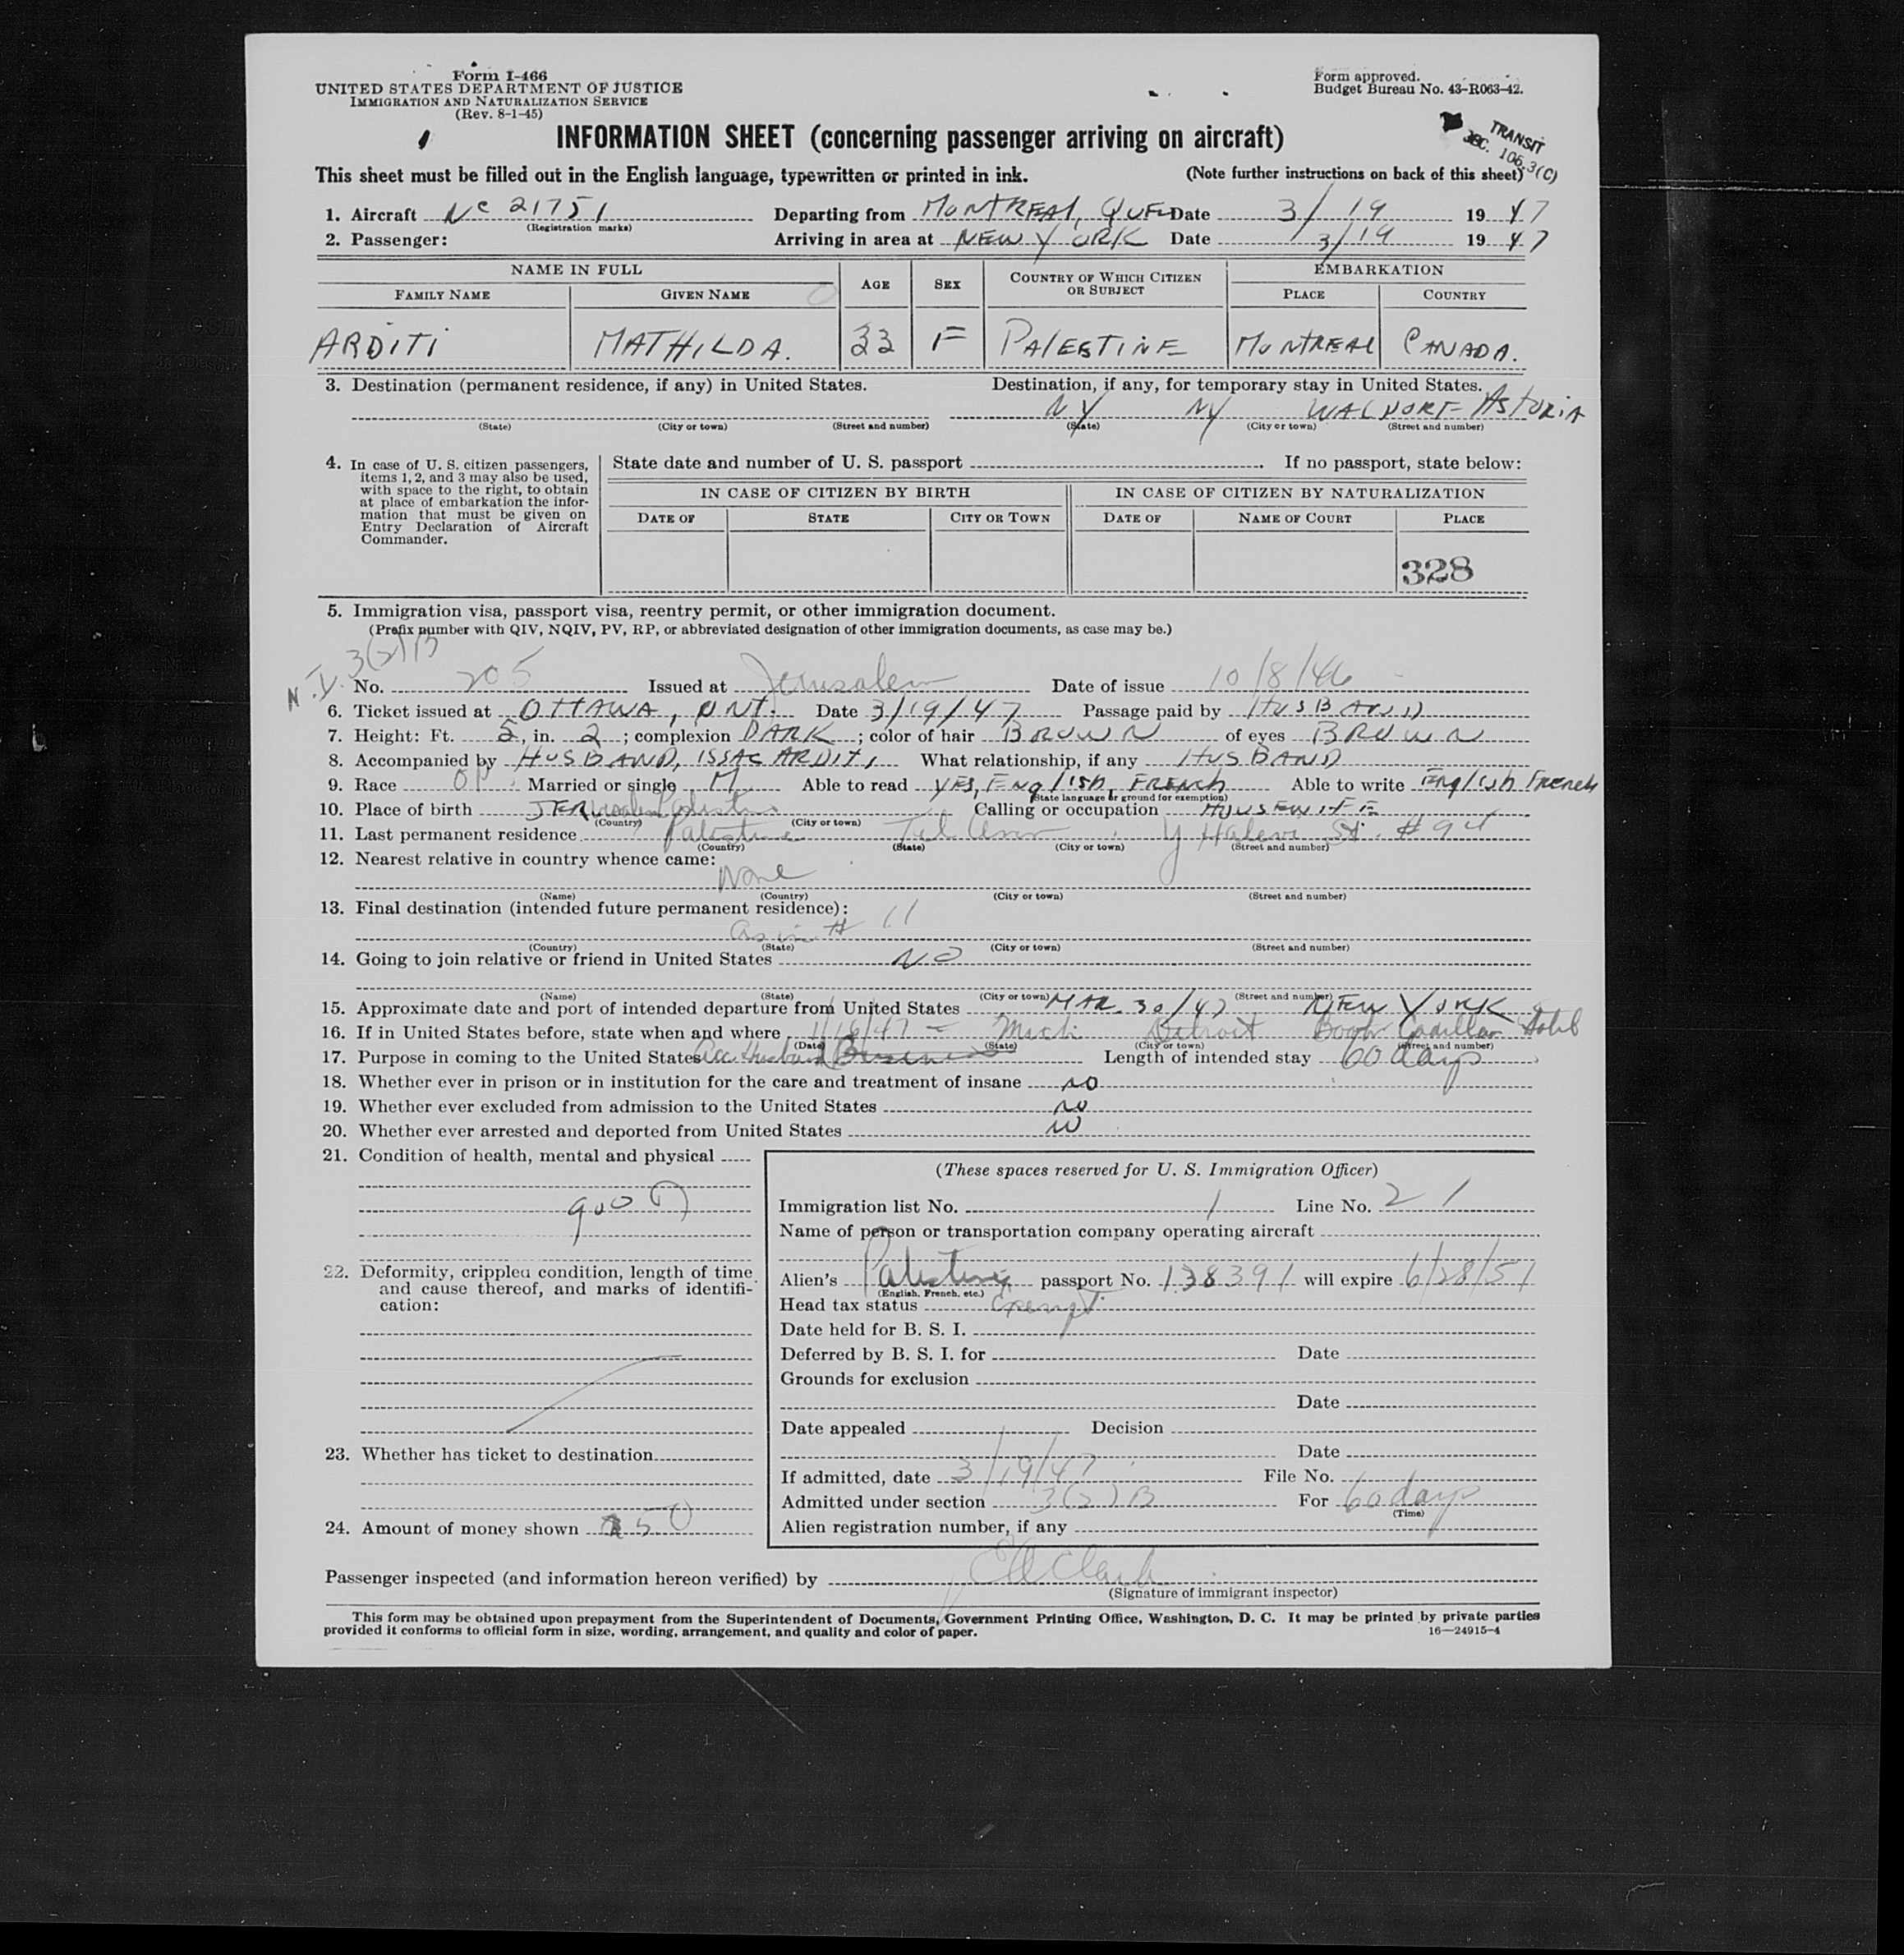 Form I-466
UNITED STATES DEPARTMENT OF JUSTICE
IMMIGRATION AND NATURALIZATION SERVICE
(Rev. 8-1-45)
Form approved.
Budget Bureau No. 43-R063-42.
INFORMATION SHEET (concerning passenger arriving on aircraft)
TRANSIT
SEC. 106.3(C)
This sheet must be filled out in the English language, typewritten or printed in ink. (Note further instructions on back of this sheet)
1. Aircraft NC 21751 Departing from MONTREAL, QUE Date 3/19 1947
(Registration marks)
2. Passenger: Arriving in area at NEW YORK Date 3/19 1947
NAME IN FULL AGE SEX COUNTRY OF WHICH CITIZEN OR SUBJECT EMBARKATION
FAMILY NAME GIVEN NAME PLACE COUNTRY
ARDITI MATHILDA. 33 F PALESTINE MONTREAL CANADA.
3. Destination (permanent residence, if any) in United States. Destination, if any, for temporary stay in United States.
NY NY WALDORF-ASTORIA
(State) (City or town) (Street and number) (State) (City or town) (Street and number)
4. In case of U. S. citizen passengers, items 1, 2, and 3 may also be used, with space to the right, to obtain at place of embarkation the information that must be given on Entry Declaration of Aircraft Commander.
State date and number of U. S. passport . If no passport, state below:
IN CASE OF CITIZEN BY BIRTH IN CASE OF CITIZEN BY NATURALIZATION
DATE OF STATE CITY OR TOWN DATE OF NAME OF COURT PLACE
328
5. Immigration visa, passport visa, reentry permit, or other immigration document.
(Prefix number with QIV, NQIV, PV, RP, or abbreviated designation of other immigration documents, as case may be.)
N.I.V. 3(2)B
No. 205 Issued at Jerusalem Date of issue 10/8/46
6. Ticket issued at OTTAWA, ONT. Date 3/19/47 Passage paid by HUSBAND
7. Height: Ft. 5, in. 2; complexion DARK; color of hair BROWN of eyes BROWN
8. Accompanied by HUSBAND, ISSAC ARDITI What relationship, if any HUSBAND
9. Race Married or single M Able to read YES, English, FRENCH Able to write English French
(State language or ground for exemption)
10. Place of birth JERusalem Palestine Calling or occupation HOUSEWIFE
(Country) (City or town)
11. Last permanent residence Palestine Tel Aviv Y Halevi St. #94
(Country) (State) (City or town) (Street and number)
12. Nearest relative in country whence came:
None
(Name) (Country) (City or town) (Street and number)
13. Final destination (intended future permanent residence):
as in # 11
(Country) (State) (City or town) (Street and number)
14. Going to join relative or friend in United States NO
(Name) (State) (City or town) (Street and number)
15. Approximate date and port of intended departure from United States MAR. 30/47 NEW YORK
16. If in United States before, state when and where 1/16/47 - Mich Detroit Book Cadillac Hotel
(Date) (State) (City or town) (Street and number)
17. Purpose in coming to the United States Acc Husband Business Length of intended stay 60 days
18. Whether ever in prison or in institution for the care and treatment of insane no
19. Whether ever excluded from admission to the United States no
20. Whether ever arrested and deported from United States no
21. Condition of health, mental and physical
good
22. Deformity, crippled condition, length of time and cause thereof, and marks of identification:
23. Whether has ticket to destination
24. Amount of money shown 250
(These spaces reserved for U. S. Immigration Officer)
Immigration list No. 1 Line No. 21
Name of person or transportation company operating aircraft
Alien's Palestine passport No. 138391 will expire 6/28/51
(English, French, etc.)
Head tax status Exempt
Date held for B. S. I.
Deferred by B. S. I. for Date
Grounds for exclusion
Date
Date appealed Decision
Date
If admitted, date 3/19/47 File No.
Admitted under section 3(2)B For 60 days
(Time)
Alien registration number, if any
Passenger inspected (and information hereon verified) by
(Signature of immigrant inspector)
This form may be obtained upon prepayment from the Superintendent of Documents, Government Printing Office, Washington, D. C. It may be printed by private parties
provided it conforms to official form in size, wording, arrangement, and quality and color of paper. 16—24915-4